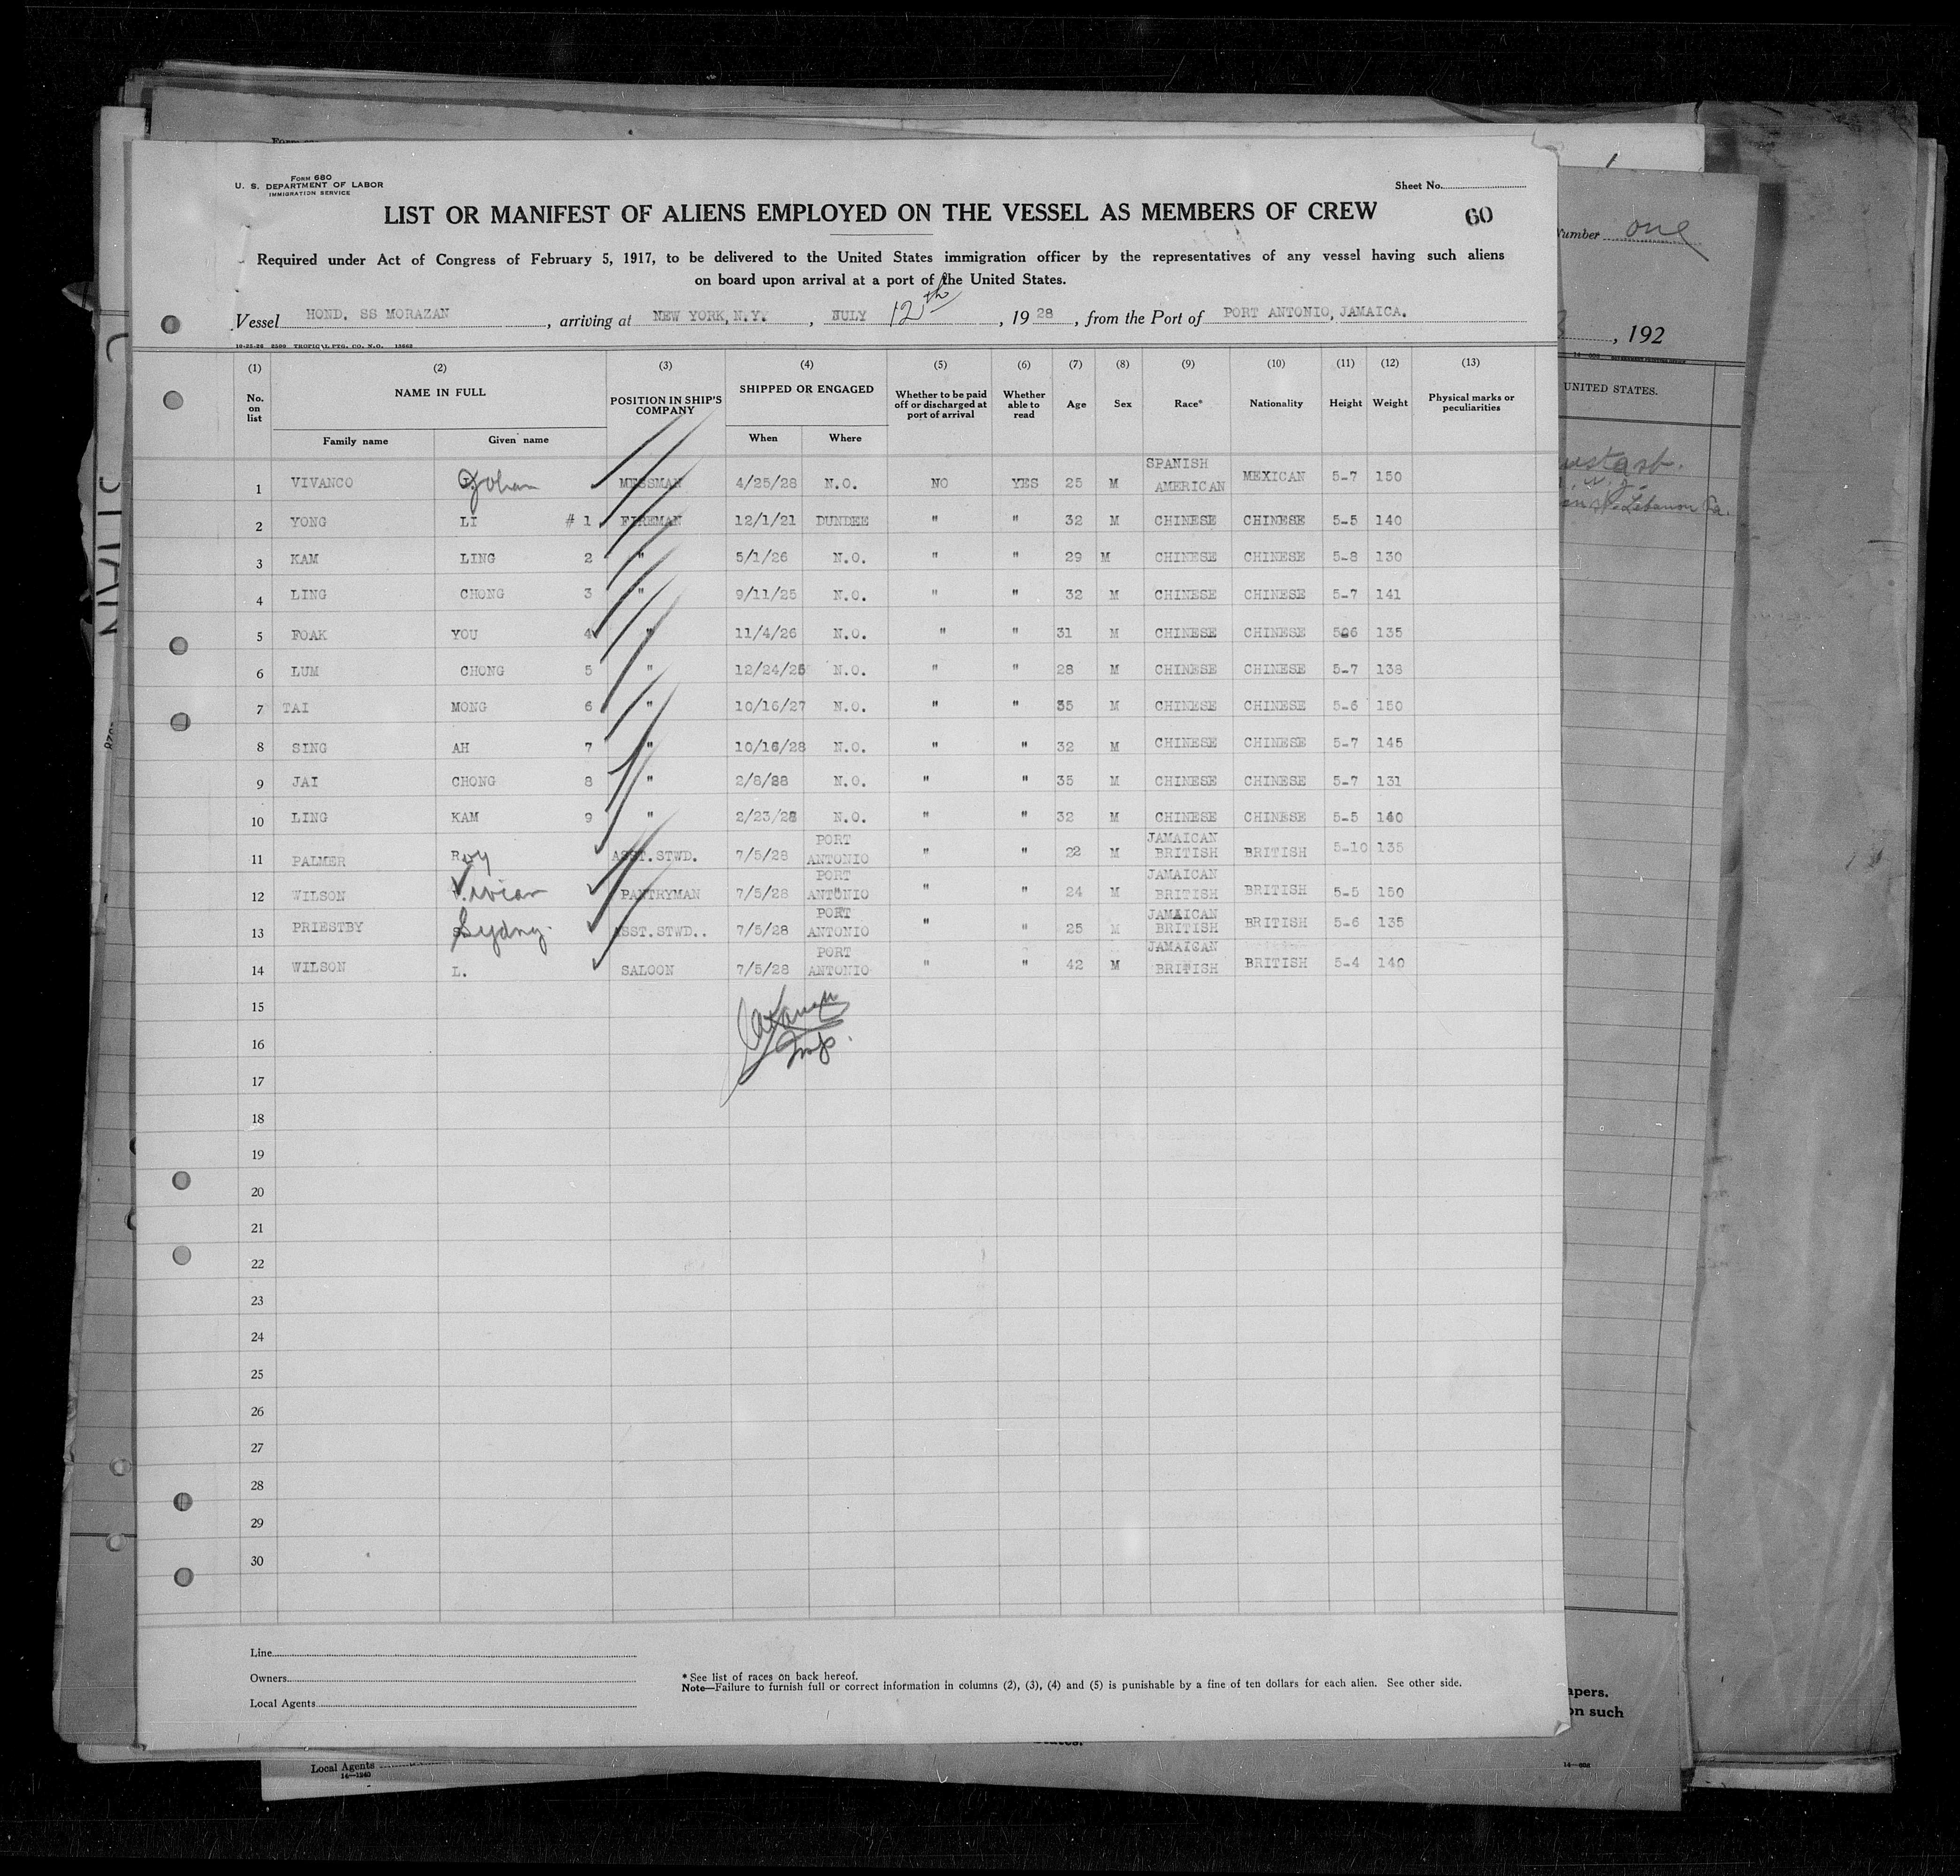 Form 680
U. S. DEPARTMENT OF LABOR
IMMIGRATION SERVICE
Sheet No.
LIST OR MANIFEST OF ALIENS EMPLOYED ON THE VESSEL AS MEMBERS OF CREW
60
Required under Act of Congress of February 5, 1917, to be delivered to the United States immigration officer by the representatives of any vessel having such aliens
on board upon arrival at a port of the United States.
Vessel HOND. SS MORAZAN, arriving at NEW YORK, N.Y., JULY 12th, 1928, from the Port of PORT ANTONIO, JAMAICA.
10-25-26 2500 TROPICAL PTG. CO. N.O. 13663
(1) (2) (3) (4) (5) (6) (7) (8) (9) (10) (11) (12) (13)
No. on list NAME IN FULL POSITION IN SHIP'S COMPANY SHIPPED OR ENGAGED Whether to be paid off or discharged at port of arrival Whether able to read Age Sex Race* Nationality Height Weight Physical marks or peculiarities
Family name Given name When Where
1 VIVANCO MESSMAN 4/25/28 N.O. NO YES 25 M SPANISH AMERICAN MEXICAN 5-7 150
2 YONG LI # 1 FIREMAN 12/1/21 DUNDEE " " 32 M CHINESE CHINESE 5-5 140
3 KAM LING 2 " 5/1/26 N.O. " " 29 M CHINESE CHINESE 5-8 130
4 LING CHONG 3 " 9/11/25 N.O. " " 32 M CHINESE CHINESE 5-7 141
5 FOAK YOU 4 " 11/4/26 N.O. " " 31 M CHINESE CHINESE 5-6 135
6 LUM CHONG 5 " 12/24/25 N.O. " " 28 M CHINESE CHINESE 5-7 138
7 TAI MONG 6 " 10/16/27 N.O. " " 35 M CHINESE CHINESE 5-6 150
8 SING AH 7 " 10/16/28 N.O. " " 32 M CHINESE CHINESE 5-7 145
9 JAI CHONG 8 " 2/8/28 N.O. " " 35 M CHINESE CHINESE 5-7 131
10 LING KAM 9 " 2/23/28 N.O. " " 32 M CHINESE CHINESE 5-5 140
11 PALMER Roy ASST. STWD. 7/5/28 PORT ANTONIO " " 22 M JAMAICAN BRITISH BRITISH 5-10 135
12 WILSON Vivian PANTRYMAN 7/5/28 PORT ANTONIO " " 24 M JAMAICAN BRITISH BRITISH 5-5 150
13 PRIESTBY Sydny. ASST. STWD.. 7/5/28 PORT ANTONIO " " 25 M JAMAICAN BRITISH BRITISH 5-6 135
14 WILSON L. SALOON 7/5/28 PORT ANTONIO " " 42 M JAMAICAN BRITISH BRITISH 5-4 140
15
16 Insp.
17
18
19
20
21
22
23
24
25
26
27
28
29
30
Line
Owners
Local Agents
* See list of races on back hereof.
Note—Failure to furnish full or correct information in columns (2), (3), (4) and (5) is punishable by a fine of ten dollars for each alien. See other side.
Number one
, 192
UNITED STATES.
Lebanon Pa.
apers.
on such
Local Agents
14—1240